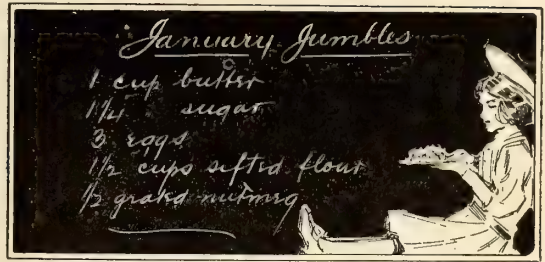 January Jumbles
1 cup butter
1 1/4 sugar
3 eggs
1 1/2 cups sifted flour
1/2 grated nutmeg